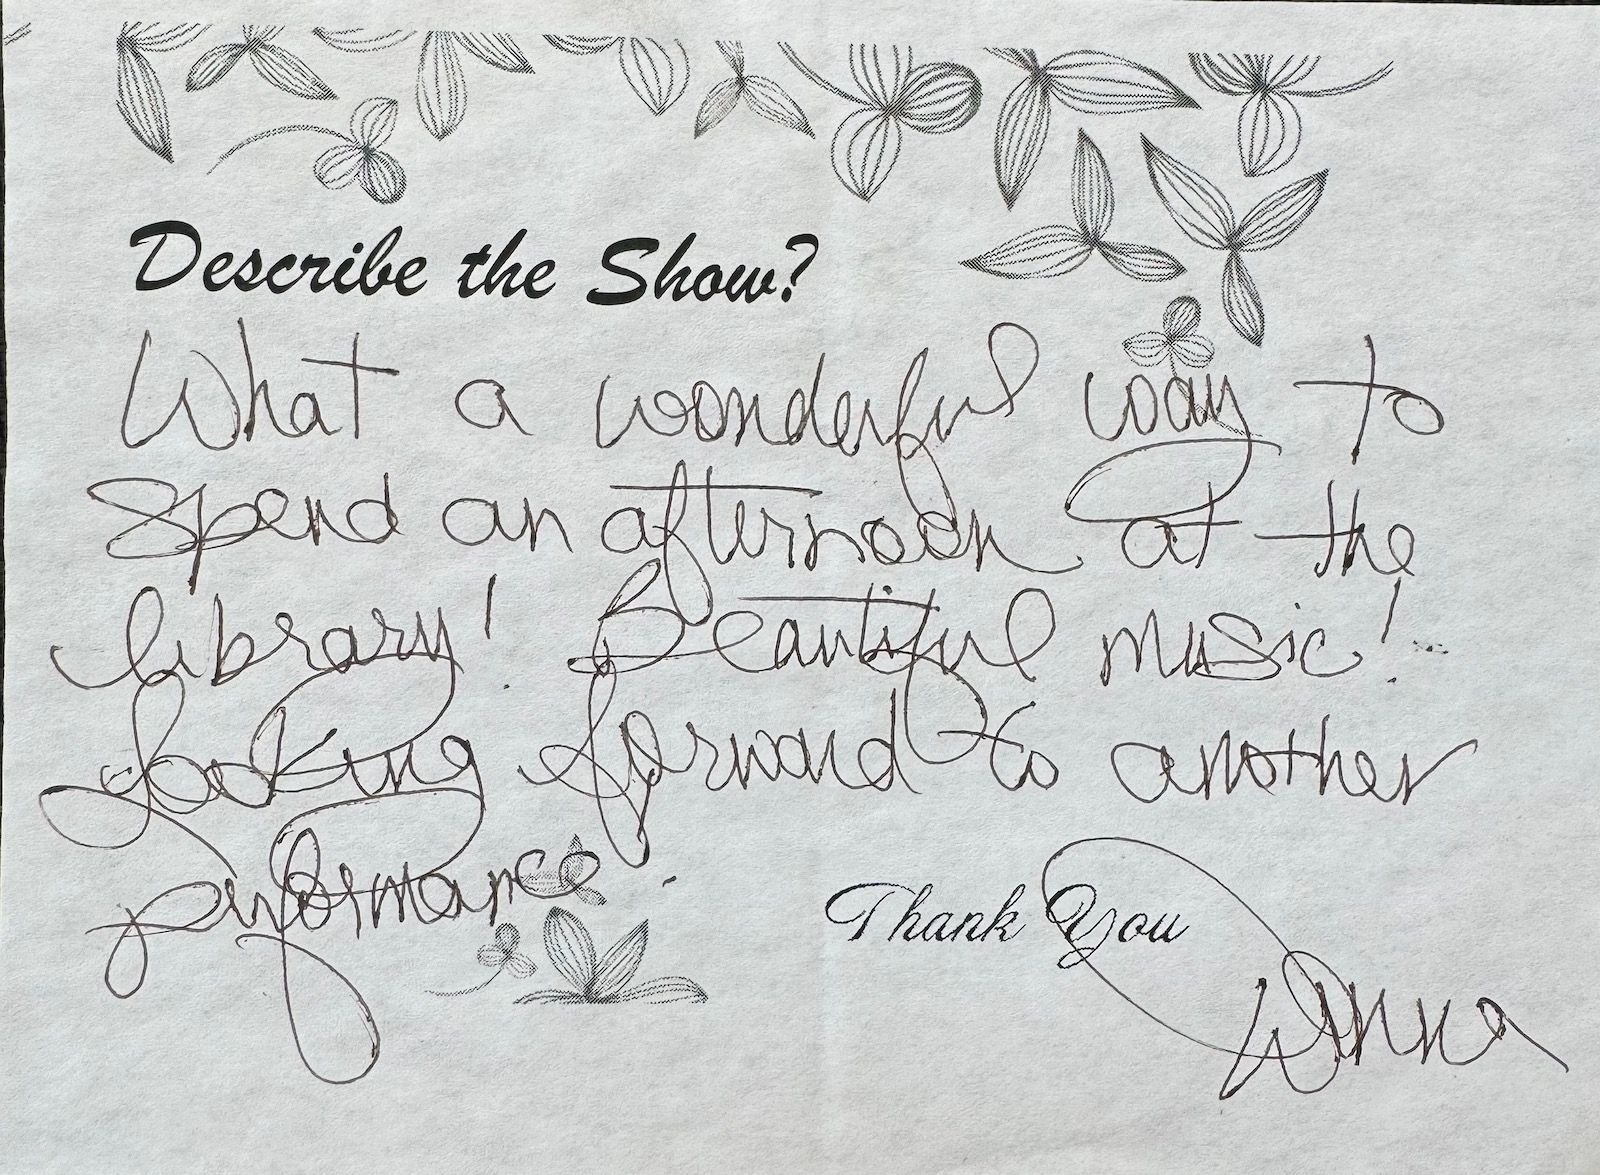 Describe the Show?
What a wonderful way to
spend an afternoon at the
library! Beautiful music!
Looking forward to another
performance.
Thank You